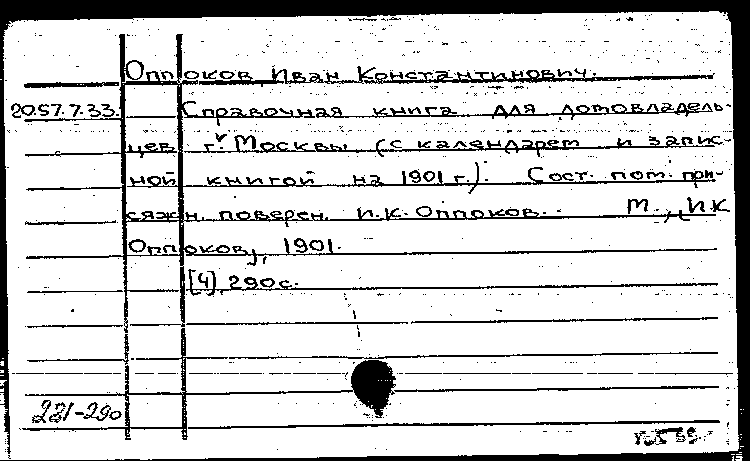 Оппоков, Иван Константинович.
20.57.7.33. Справочная книга для домовладель-
цев г. Москвы (с календарем и запис-
ной книгой на 1901 г.). Сост. пом. при-
сяжн. поверен. И.К. Оппоков. М., И.К
Оппоков, 1901.
[4], 290 с.
281-290